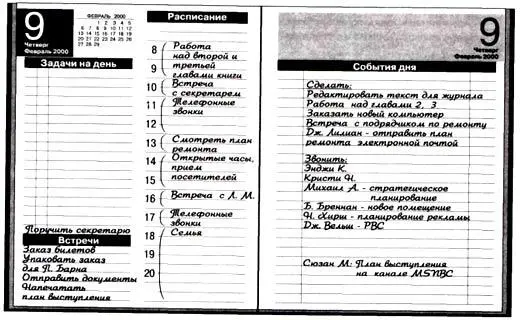 9
Четверг
Февраль 2000
ФЕВРАЛЬ 2000
1 2 3 4 5
6 7 8 9 10 11 12
13 14 15 16 17 18 19
20 21 22 23 24 25 26
27 28 29
Задачи на день
Поручить секретарю
Встречи
Заказ билетов
Упаковать заказ
для П. Барна
Отправить документы
Напечатать
план выступления
Расписание
8 Работа
над второй и
9 третьей
главами книги
10 Встреча
с секретарем
11 Телефонные
звонки
12
13 Смотреть план
ремонта
14 Открытые часы,
прием
15 посетителей
16 Встреча с Л. М.
17 Телефонные
звонки
18 Семья
19
20
9
Четверг
Февраль 2000
События дня
Сделать:
Редактировать текст для журнала
Работа над главами 2, 3
Заказать новый компьютер
Встреча с подрядчиком по ремонту
Дж. Лилиан - отправить план
ремонта электронной почтой
Звонить:
Энджи К.
Кристи Н.
Михаил А. - стратегическое
планирование
Б. Бреннан - новое помещение
Н. Хирш - планирование рекламы
Дж. Вельш - PBC
Сюзан М: План выступления
на канале MSNBC